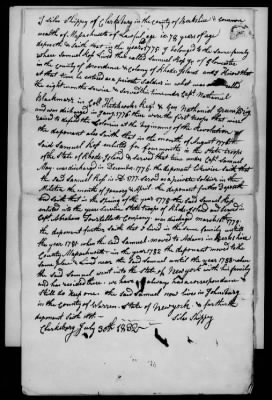 I Silas Shippy of Clarksburg in the county of Berkshire & common
wealth of Massachusetts of lawful age ie 78 years of age
depose & saith that in the year 1775 I belonged to the same family
where Samuel lived that called Samuel of Glocester
in the county of Providence & colony of Rhode Island and I know that
at that time he entered as a private Soldier in what was called
the eight months service & served the time under Captain Nathaniel
Blackmar in Col Hitchcocks Regt & Gen Nathanael
was discharged in Jany 1776 these were the first troops that were
raised to defend the at the beginning of the Revolution
the deponent also saith that in the month of August 1776
said Samuel enlisted for four months in the State troops
of the State of Rhode Island & served that time under Capt Samuel
May was discharged in December 1776 the deponent likewise saith that
the said Samuel in 1777 served as private soldier in the
Militia the month of January & April the deponent further deposeth
and saith that in the spring of the year 1778 the said Samuel
enlisted in the year service State troops of Rhode Island and served in
Capt Abraham company was discharged March 1779
the deponent further saith that I lived in the same family until
the year 1781 when the said Samuel moved to Adams in Berkshire
County Massachusetts in the year 1782 the deponent moved to the
same place & lived near the said Samuel until the year 1788 when
the said Samuel went into the state of New york with his family
and has resided there we have always had a correspondence &
still do keep one the said Samuel now lives in Johnsburg
in the County of Warren State of New york & further the
deponent saith not
Silas Shippy
Clarksburg July 30th 1832